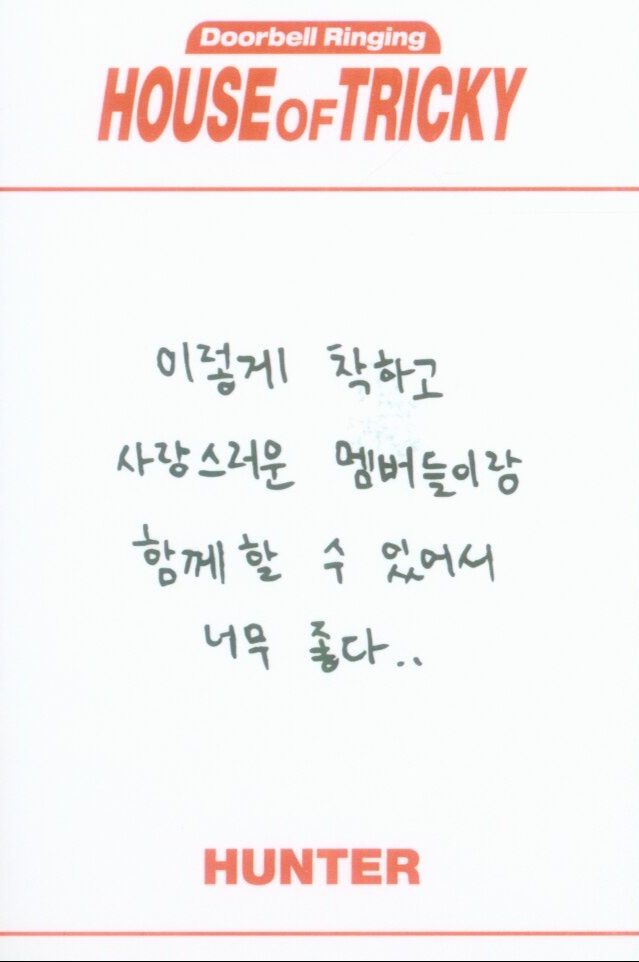 Doorbell Ringing
HOUSE OF TRICKY
이렇게 착하고
사랑스러운 멤버들이랑
함께할 수 있어서
너무 좋다..
HUNTER